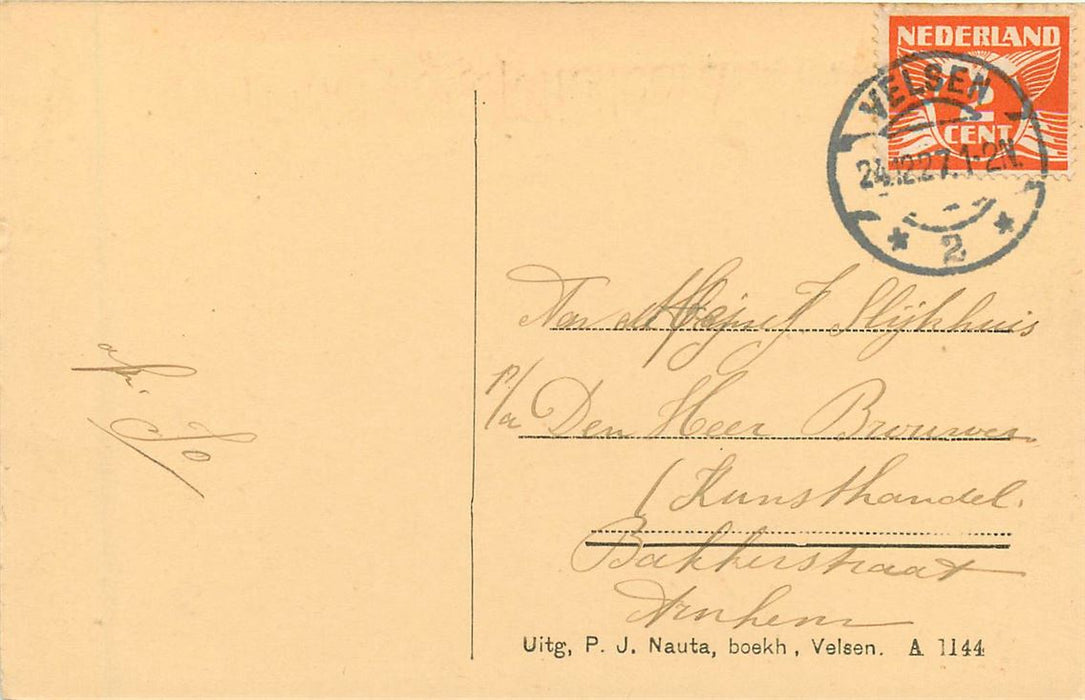 NEDERLAND
2
CENT
VELSEN
24.12.27.1-2N.
* 2 *
Aan Mejuf J. Slijkhuis
p/a Den Heer Brouwer
Kunsthandel.
Bakkerstraat
Arnhem
afz. Jo
Uitg, P. J. Nauta, boekh, Velsen. A 1144